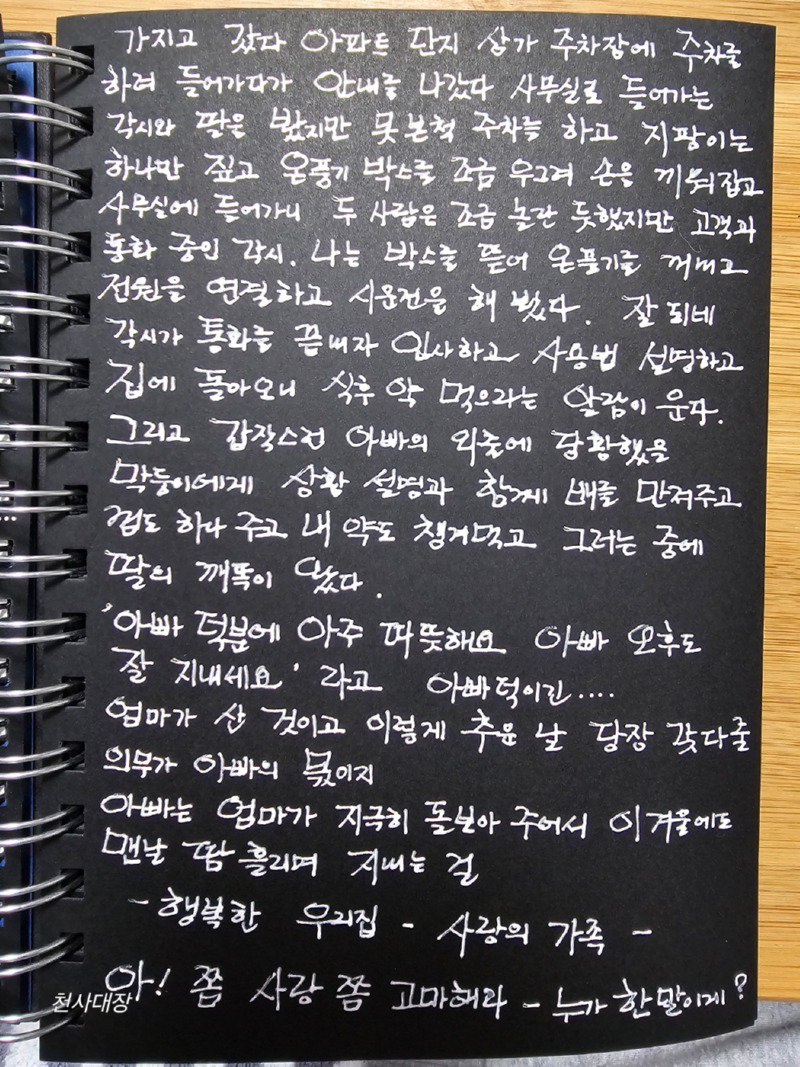 가지고 갔다 아파트 단지 상가 주차장에 주차를
하려 들어가다가 안내를 나갔다 사무실로 들어가는
각시와 딸은 봤지만 못본척 주차를 하고 지팡이는
하나만 짚고 온풍기 박스를 조금 우그려 손을 끼워잡고
사무실에 들어가니 두 사람은 조금 놀란 듯했지만 고객과
통화 중인 각시. 나는 박스를 뜯어 온풍기를 꺼내고
전원을 연결하고 시운전을 해 봤다. 잘 되네
각시가 통화를 끝내자 인사하고 사용법 설명하고
집에 돌아오니 식후 약 먹으라는 알람이 운다.
그리고 갑작스런 아빠의 외출에 당황했을
막둥이에게 상황 설명과 함께 배를 만져주고
껌도 하나 주고 내 약도 챙겨먹고 그러는 중에
딸의 깨똑이 왔다.
'아빠 덕분에 아주 따뜻해요 아빠 오후도
잘 지내세요' 라고 아빠덕이긴....
엄마가 산 것이고 이렇게 추운 날 당장 갖다줄
의무가 아빠의 몫이지
아빠는 엄마가 지극히 돌보아 주어서 이 겨울에도
맨날 땀 흘리며 지내는 걸
- 행복한 우리집 - 사랑의 가족 -
아! 쫌 사랑 쫌 고마해라 - 누가 한말이게?
천사대장